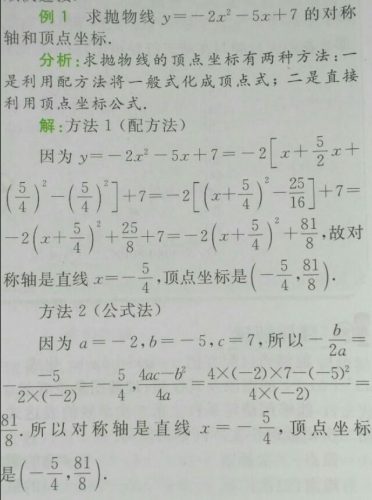 例 1 求抛物线 y=-2x²-5x+7 的对称
轴和顶点坐标.
分析:求抛物线的顶点坐标有两种方法:一
是利用配方法将一般式化成顶点式;二是直接
利用顶点坐标公式.
解:方法 1(配方法)
因为 y=-2x²-5x+7=-2[x+5/2 x+
(5/4)²-(5/4)²]+7=-2[(x+5/4)²-25/16]+7=
-2(x+5/4)²+25/8+7=-2(x+5/4)²+81/8,故对
称轴是直线 x=-5/4,顶点坐标是(-5/4,81/8).
方法 2(公式法)
因为 a=-2,b=-5,c=7,所以-b/2a=
-(-5)/(2×(-2))=-5/4,(4ac-b²)/4a=(4×(-2)×7-(-5)²)/(4×(-2))=
81/8.所以对称轴是直线 x=-5/4,顶点坐标
是(-5/4,81/8).